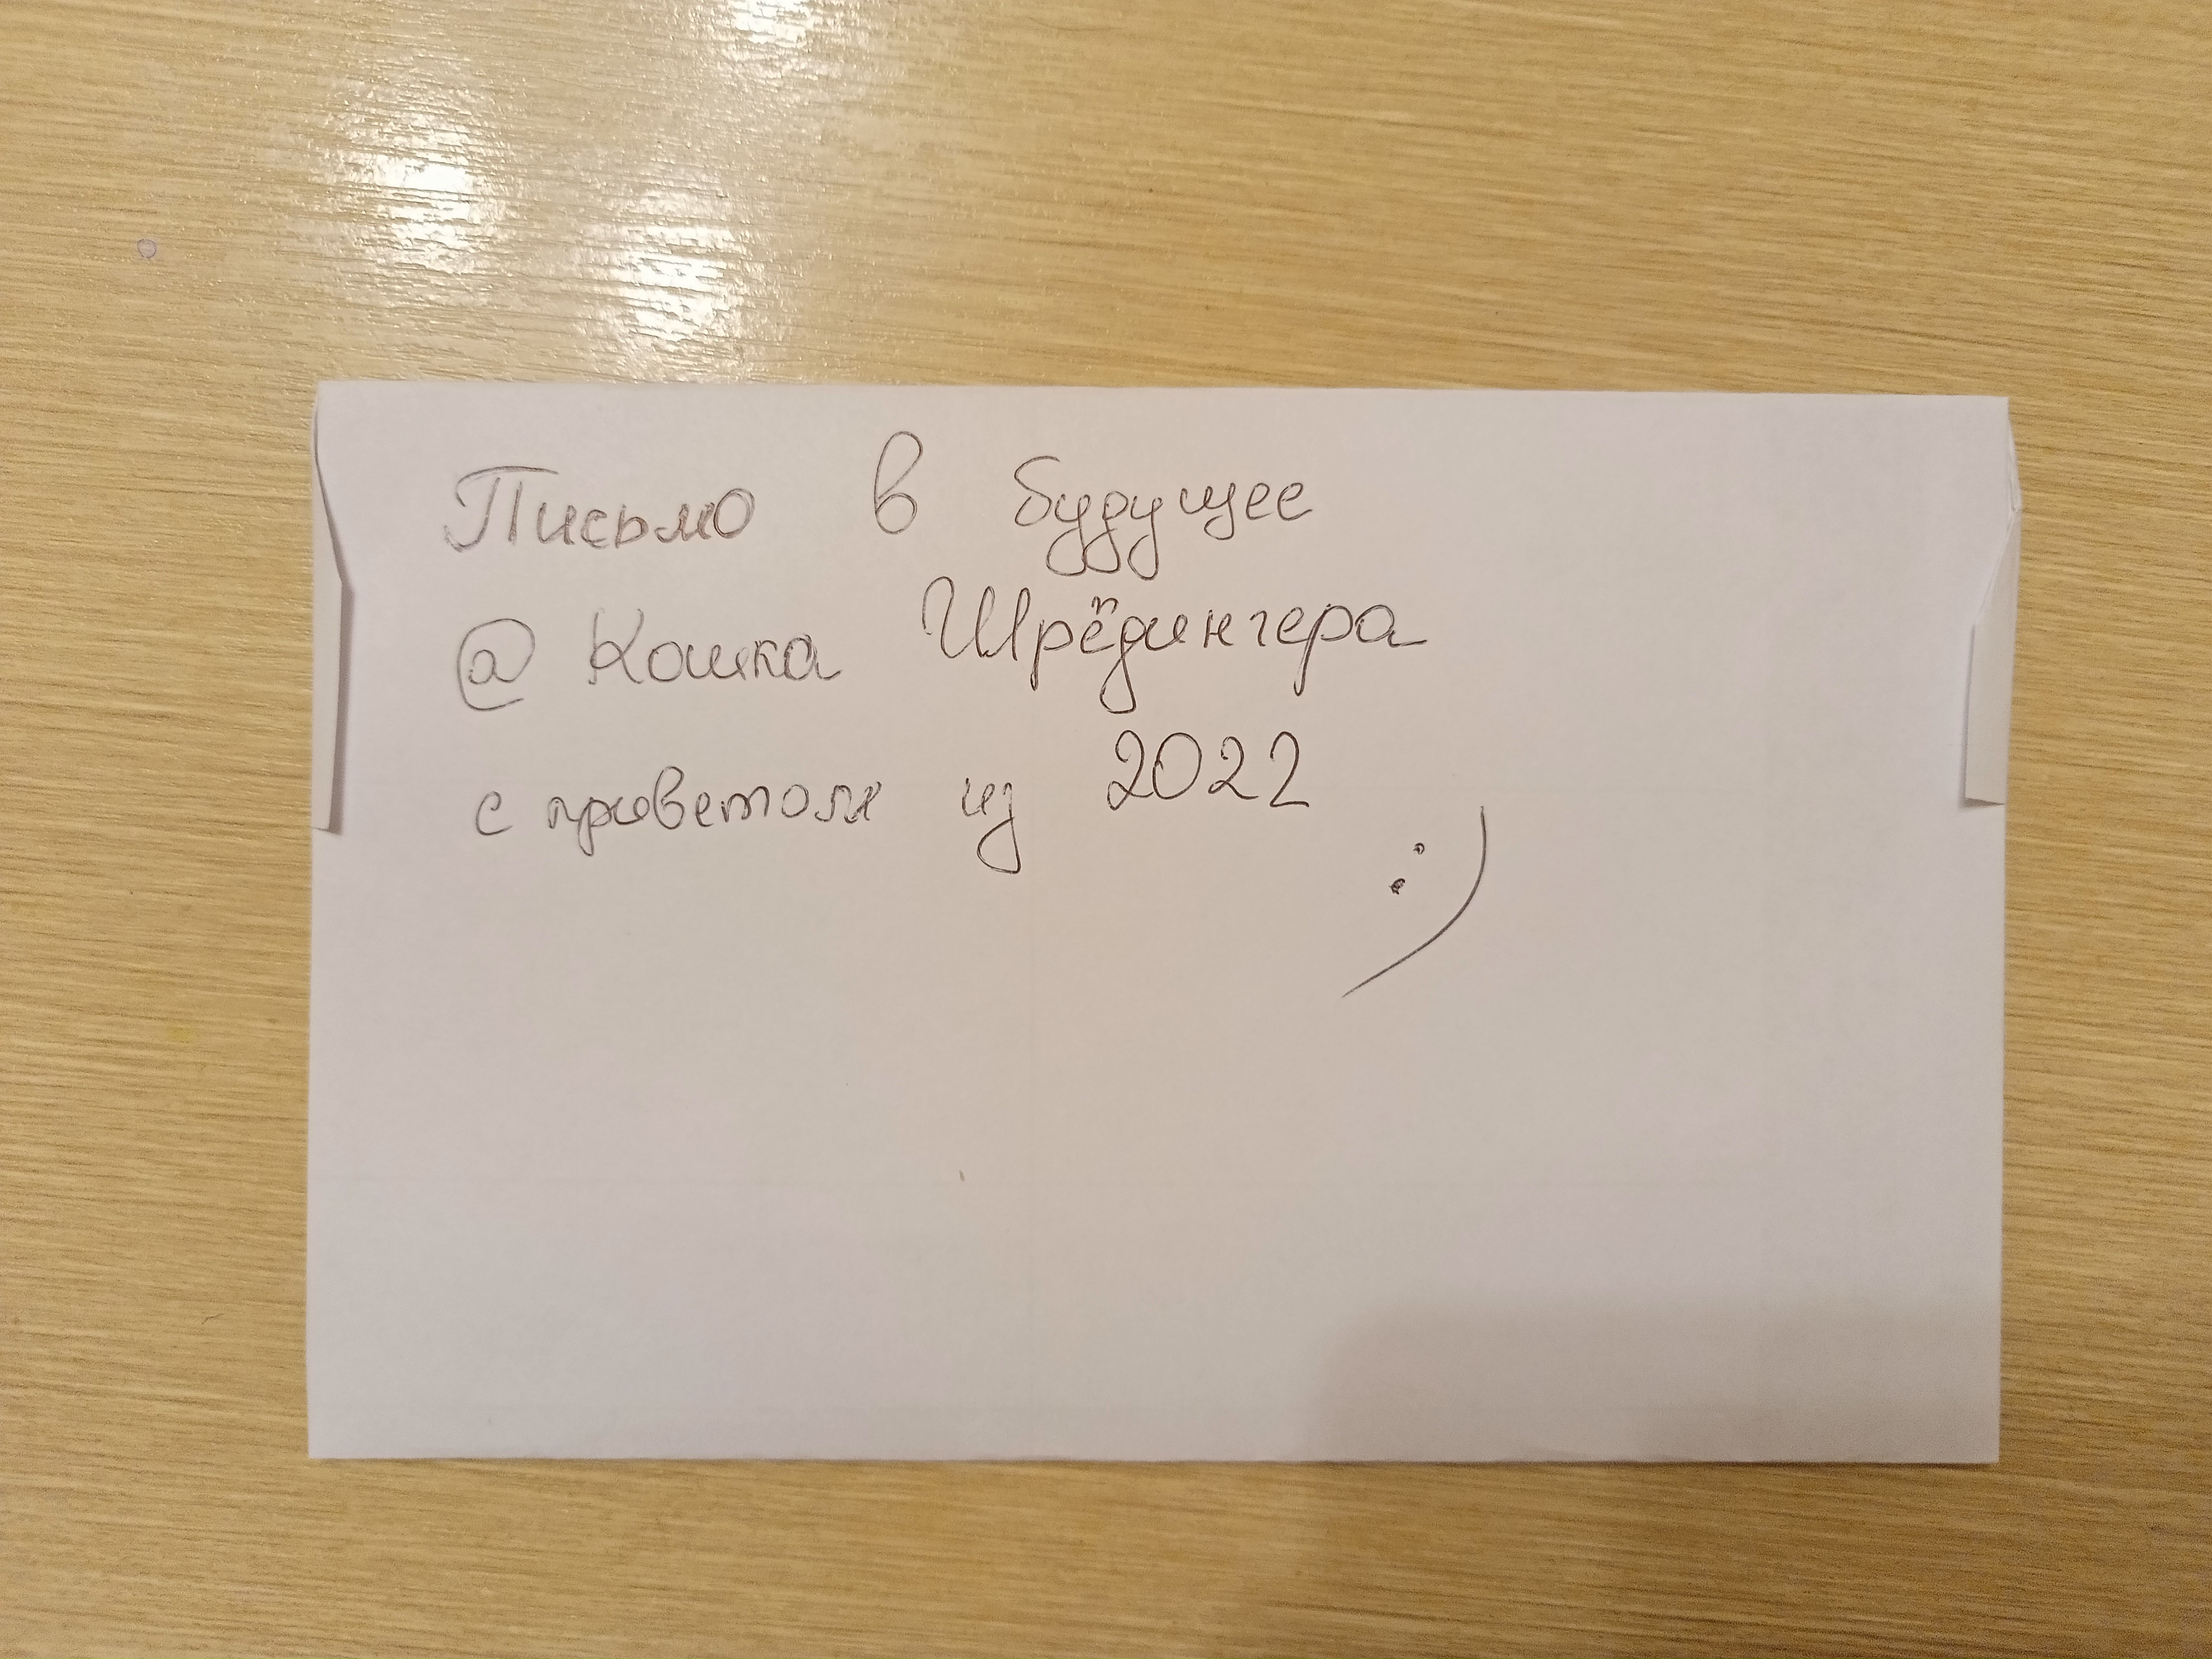 Письмо в будущее
@ Кошка Шрёдингера
с приветом из 2022
:)